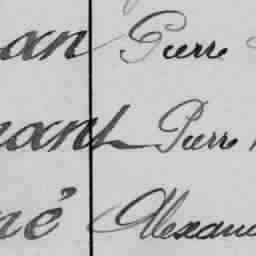 an Pierre
nant Pierre
né Alexand